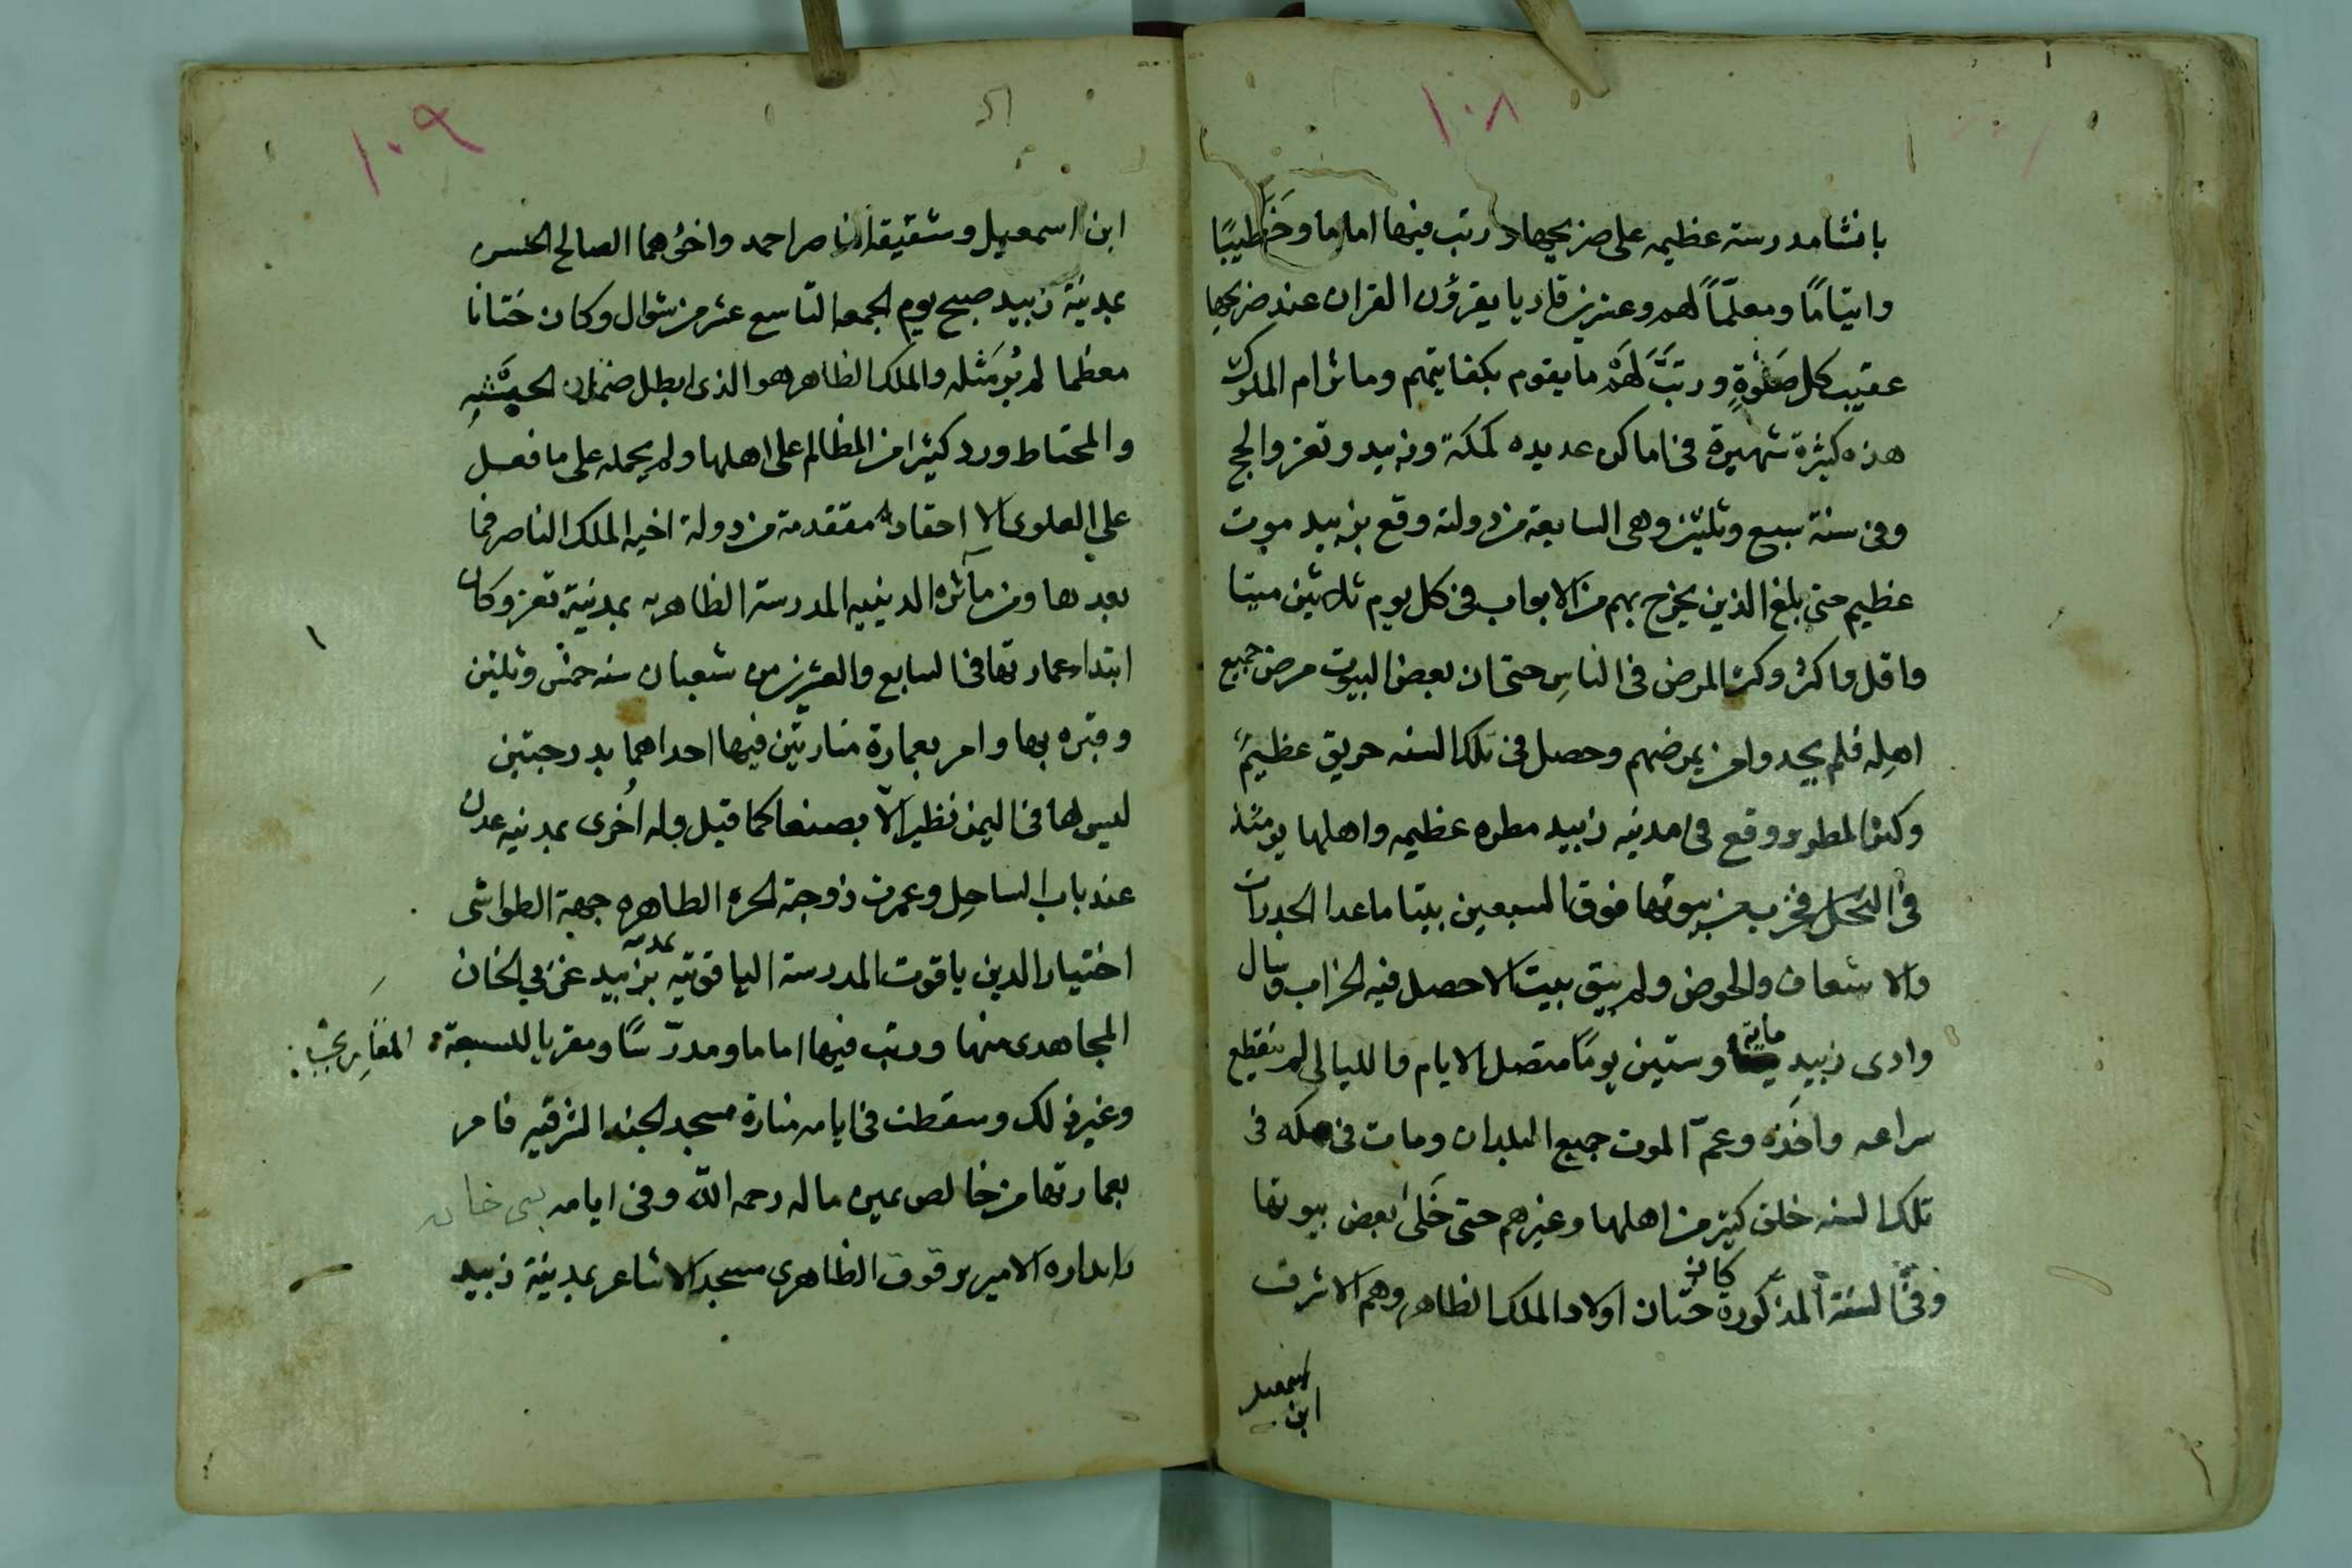 ١٠٨
بانشا مدرسة عظيمه على ضريحها ورتب فيها اماما وخَطيبًا
وايتامًا ومعلّماً لهم وعشرين قاريا يقرؤن القران عند ضريحها
عقيب كل صَلوٰةٍ ورتبَّ لَهُمْ ما يقوم بكفايتهم وماثر ام الملوك
هذه كثيرة شهيرة فى اماكن عديده كمكة وزبيد وتعز والحج
وفى سنة سبع وثلثين وهى السابعة من دولته وقع بزبيد موت
عظيم حتى بلغ الذين يخرج بهم من الابواب فى كل يوم ثلاثين ميتا
واقل واكثر وكثر المرض فى الناسِ حتى ان بعض البيوت مرض جميع
اهلِه فلم يجدوا من يمرضهم وحصل فى تلك السنه حريق عظيمً
وكثر المطر ووقع فى مدينه زبيد مطره عظيمه واهلها يومئذ
فى النخل فخرب من بيوتها فوق السبعين بيتا ما عدا الجدرات
والاسعاف والحوض ولم يبق بيت الا حصل فيه الخراب وسال
وادى زبيد مائة وستين يومًا متصل الايام والليالى لم ينقطع
سراعه واخَذه وعمّ الموت جميع البلدان ومات فى مكه فى
تلك السنه خلق كثير من اهلها وغيرهم حتى خَلىٰ بعض بيوتها
وفى السنة المذكورة كان ختان اولاد الملك الظاهر وهم الاشرف
اسمعيل
ابن
١٠٩
ابن اسمعيل وشقيقه الناصر احمد واخوُهما الصالح الحسن
بمدينة زبيد صبح يوم الجمعه التاسع عشر من شوال وكان ختانا
معظما لم يُر مَثله والملك الظاهر هو الذى ابطل ضمان الحيسَيهِ
والمحتاط ورد كثيرا من المظالم على اهلها ولم يحمله على ما فعل
على العلوى الا احقاد متقدمة من دولة اخيه الملك الناصر فما
بعدها ومن مآثره الدينيه المدرسة الظاهريه بمدينة تعز وكان
ابتداء عمارتها فى السابع والعشرين من شعبان سنه خمس وثلثين
وقبره بها وامر بعمارة منارتين فيها احداهما بدرجتين
ليس لها فى اليمن نظير الّا بصنعا كما قيل وله اُخرى بمدينه عدن
عند باب الساحِل وعمرت زوجته الحره الطاهره جهة الطواشى
اختيار الدين ياقوت المدرسة الياقوتيه بمدينة بزبيد غربي الخان
المجاهدى منها ورتب فيها اماما ومدرّسًا ومقريا للسبعة
وغير ذلك وسقطت فى ايامه منارة مسجد الجند الشرقيه فامر
بعمارتها من خالص عين ماله رحمه الله وفى ايامه بنى
بانداره الامير برقوق الظاهرى مسجد الاشاعر بمدينة زبيد